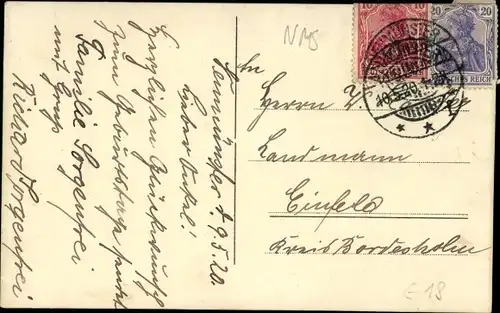 Neumünster d. 9.5.20.
Lieber Onkel!
Herzlichen Glückwunsch
zum Geburtstage sendet
Familie Sorgenfrei
mit Gruß
Richard Sorgenfrei
An
Herrn
Landmann
Einfeld
Kreis Bordesholm
NMS
E 18
10
10
20
20
DEUTSCHES REICH